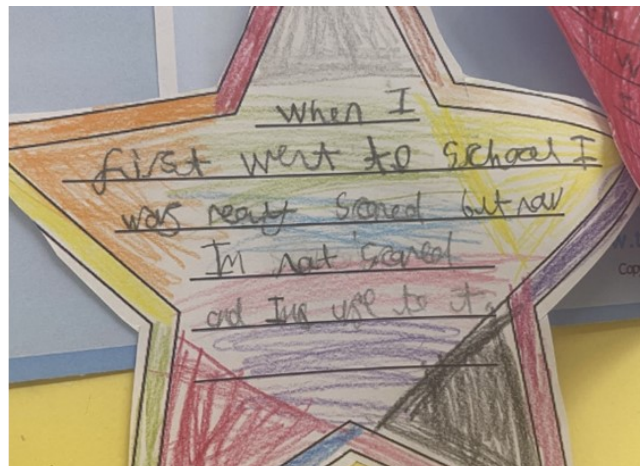 When I
first went to school I
was really scared but now
Im not scared
and Im use to it.